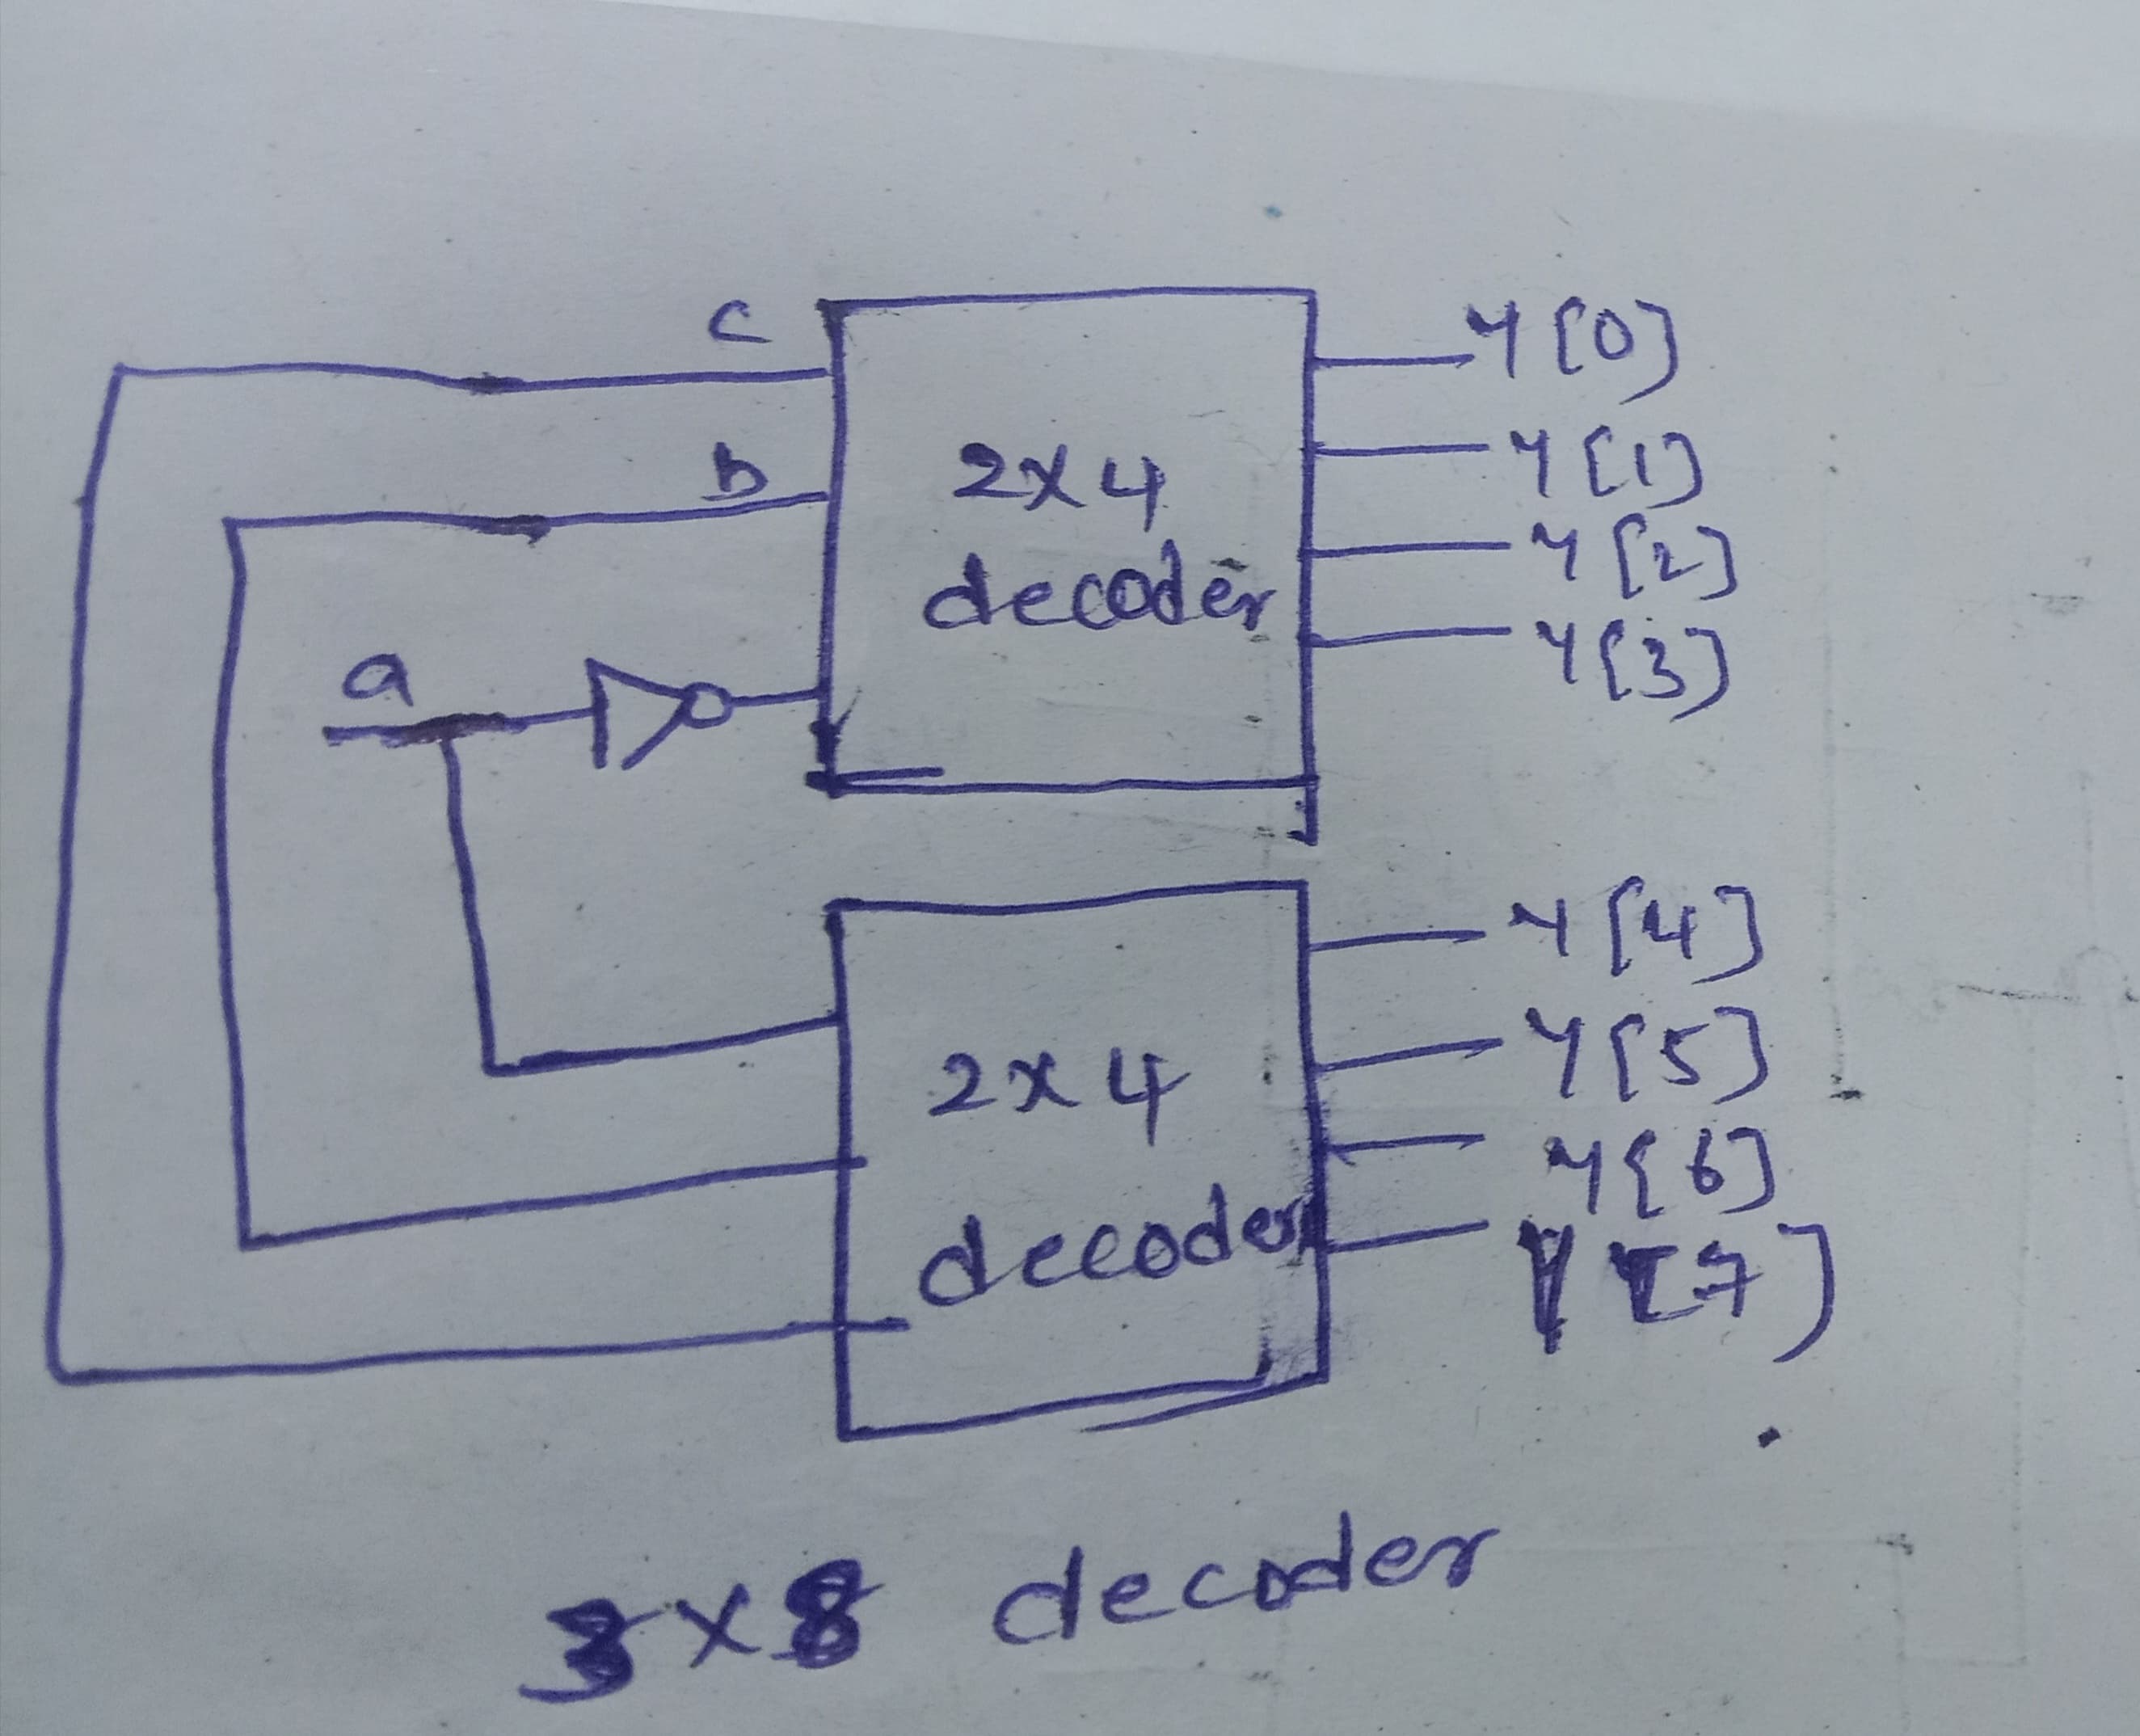 c
b
a
2x4
decoder
Y[0]
Y[1]
Y[2]
Y[3]
2x4
decoder
Y[4]
Y[5]
Y[6]
Y[7]
3x8 decoder